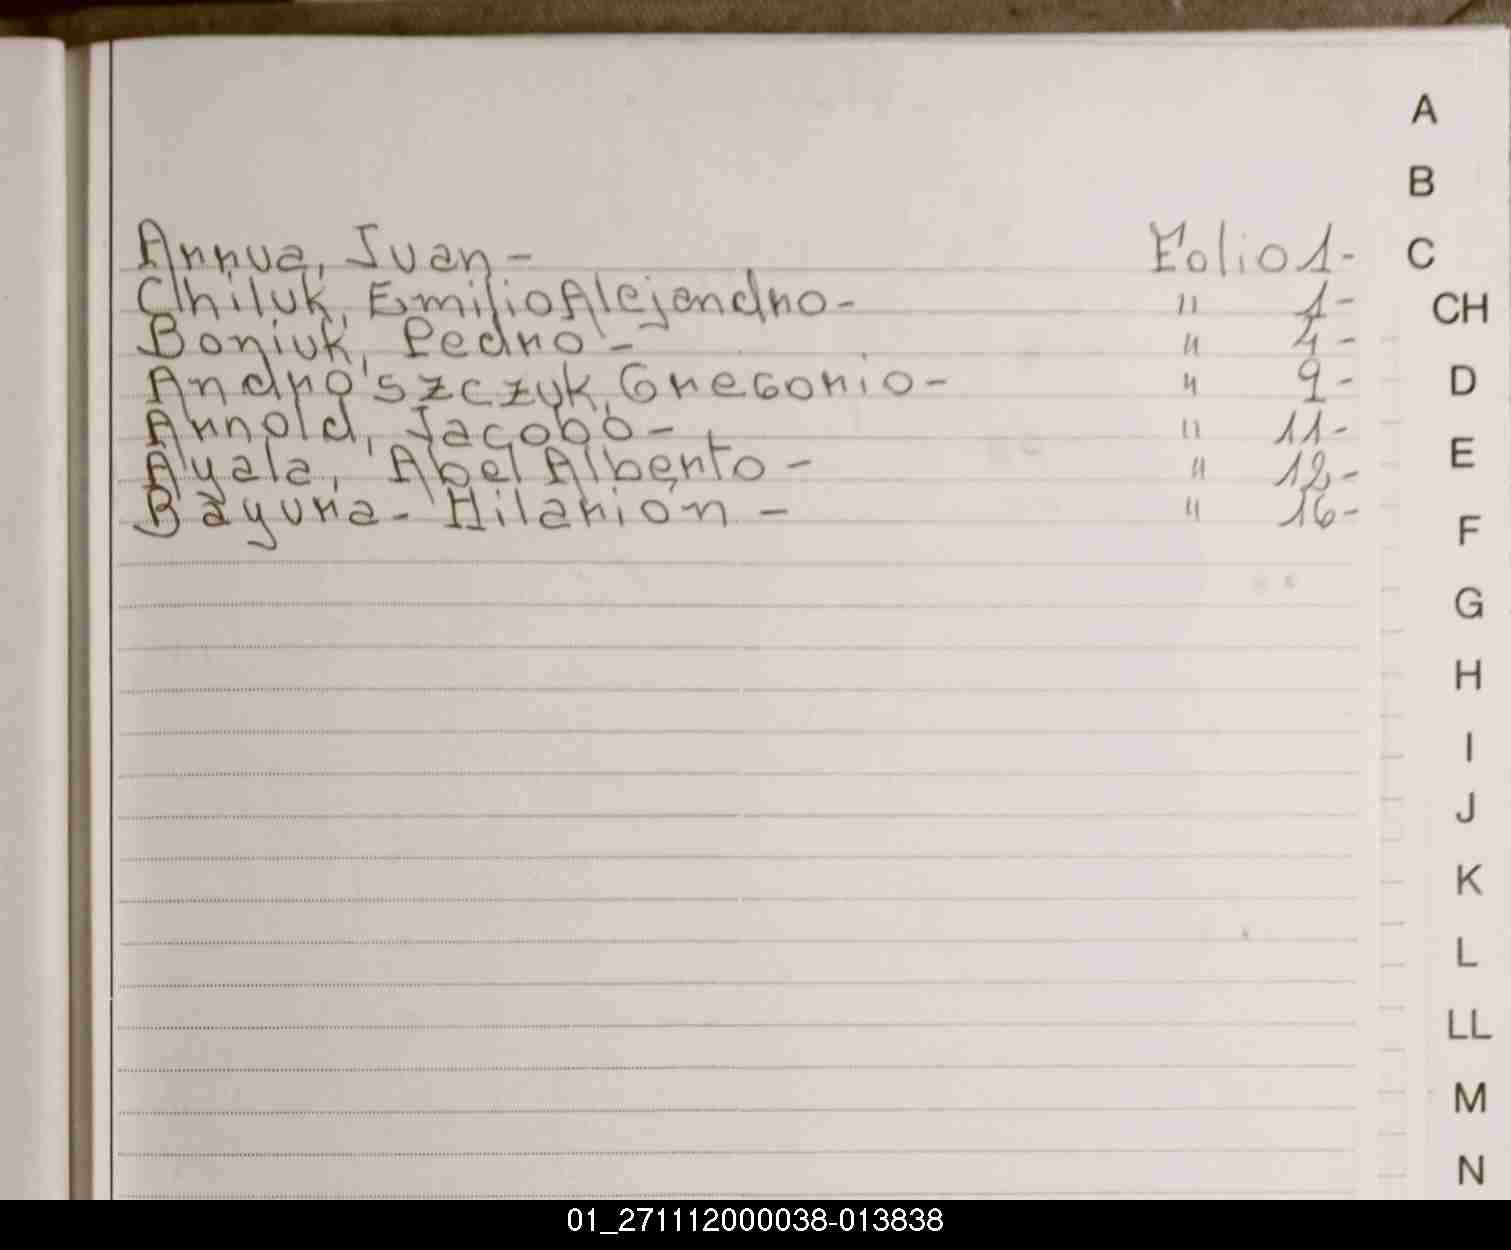 Arrua, Juan - Folio 1-
Chiluk, Emilio Alejandro - " 1-
Boniuk, Pedro - " 4-
Andro'szczyk, Gregorio - " 9-
Arnold, Jacobo - " 11-
Ayala, Abel Alberto - " 12-
Bayura - Hilarión - " 16-
A
B
C
CH
D
E
F
G
H
I
J
K
L
LL
M
N
01_271112000038-013838